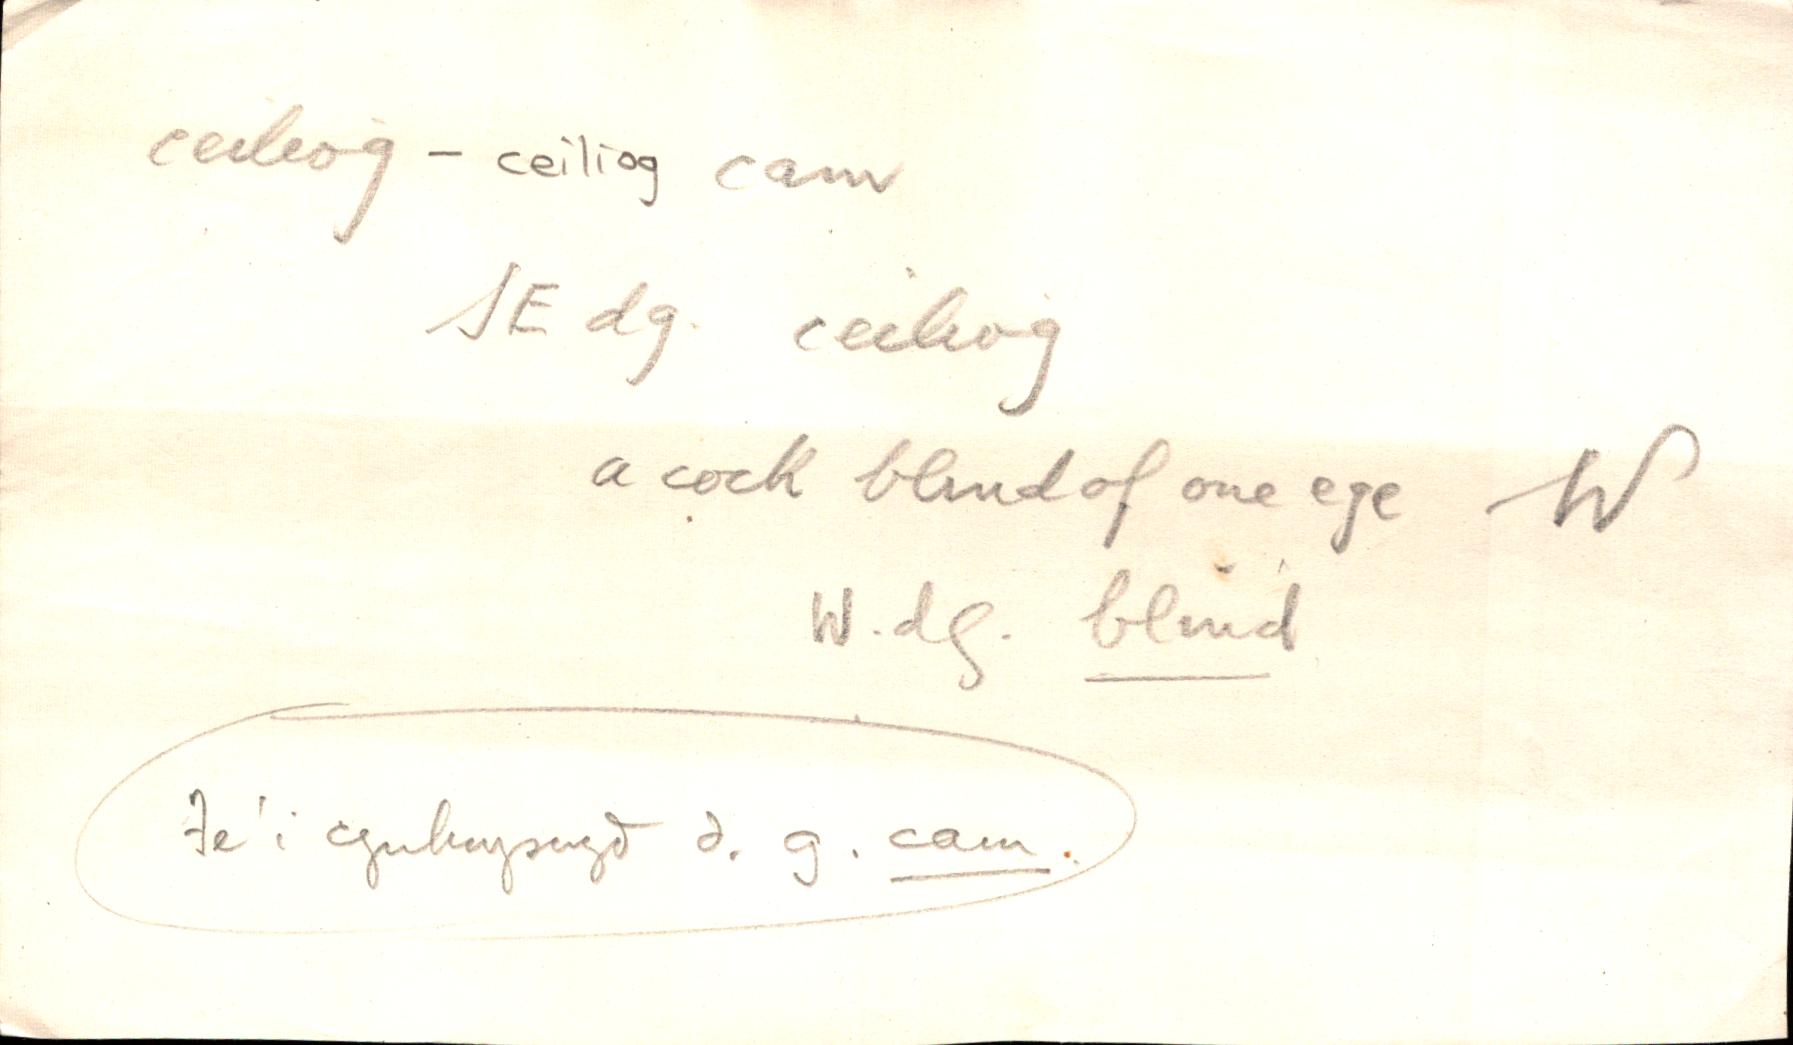 ceiliog - ceiliog cam
SE dg. ceiliog
a cock blind of one eye W
W. dg. blind
Fe'i cynhwyswyd d. g. cam.